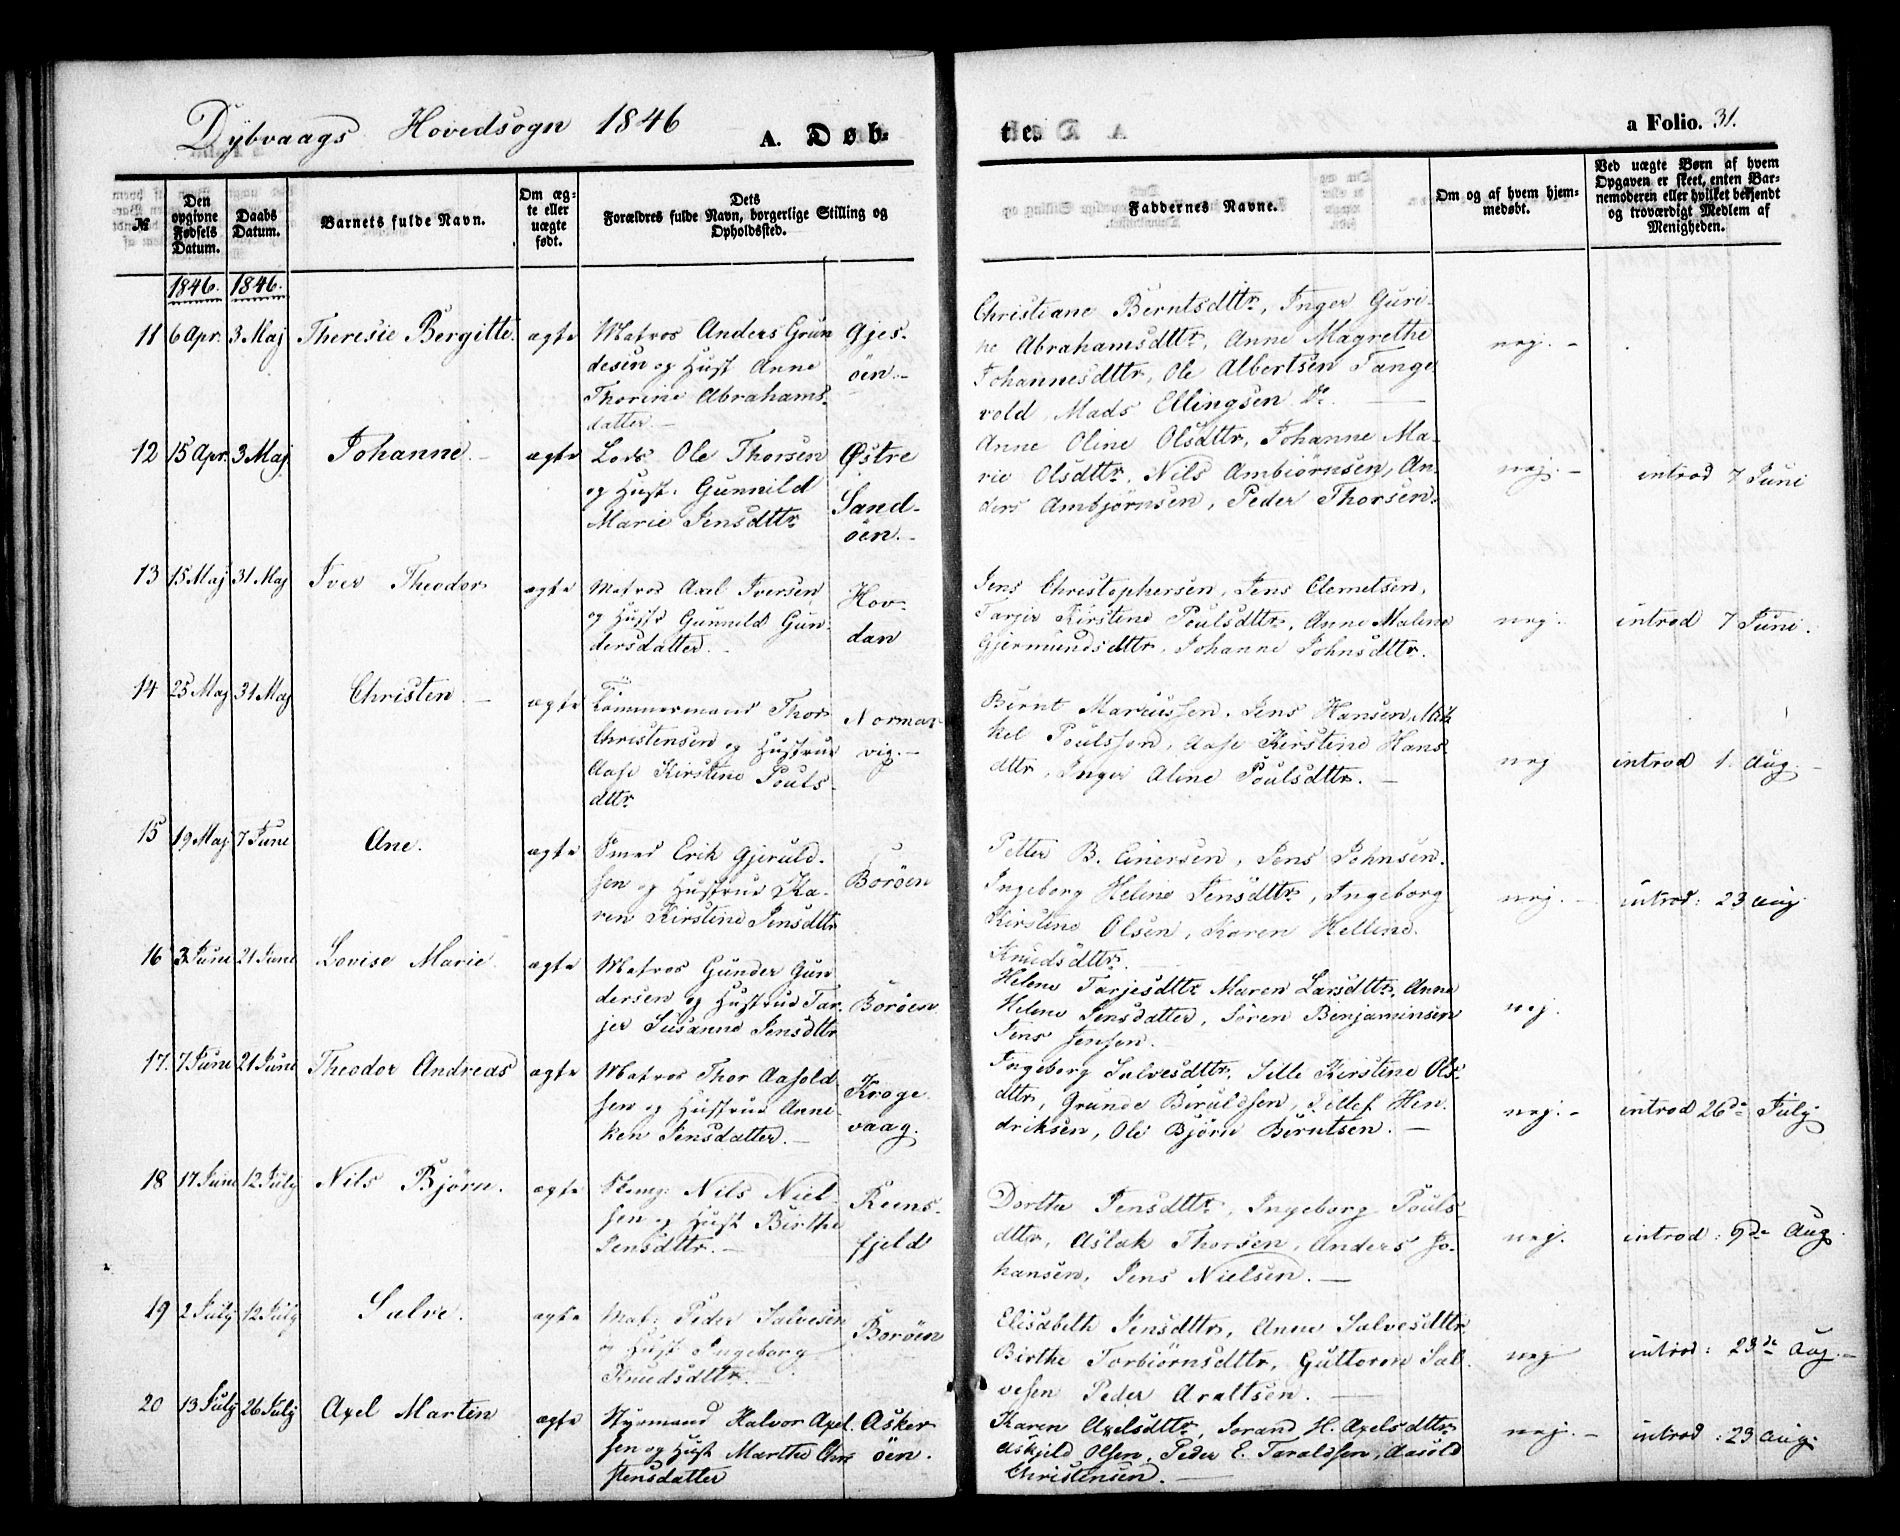 Dybvaags Hovedsogn 1846 A. Døb- te. a Folio. 31.
№
Den opgivne Fødsels Datum.
Daabs Datum.
Barnets fulde Navn.
Om æg- te eller uægte født.
Dets Forældres fulde Navn, borgerlige Stilling og Opholdssted.
Faddernes Navne.
Om og af hvem hjem- medøbt.
Ved uægte Børn af hvem Opgaven er skeet, enten Bar- nemoderen eller hvilket bekjendt og troværdigt Medlem af Menigheden.
1846. 1846.
11 6 Apr. 3 Maj Theresie Bergitte. ægte
Matros Anders Grun
desen og Hust Anne
Thorine Abrahams-
datter.
Gjes-
öen.-
Christiane Berntsdttr, Inger Guri-
ne Abrahamsdttr, Anne Magrethe
Johannesdttr, Ole Albertsen Tange
vold, Mads Ellingsen Do.
nej.-
12 15 Apr. 3 Maj Johanne.- ægte
Lods Ole Thorsen
og Hust. Gunnild
Marie Jensdttr
Østre
Sand-
öen.-
Anne Oline Olsdttr, Johanne Ma-
rie Olsdttr, Nils Ambiörnsen, An-
ders Ambjörnsen, Peder Thorsen.
nej.-
introd 7 Juni
13 15 Maj 31 Maj Iver Theodor ægte
Matros Axel Iversen
og Hust Gunnild Gun-
dersdatter.
Hov-
dan
Jens Christophersen, Jens Clemetsen,
Tarjer Kirstine Poulsdttr, Anne Maline
Gjermundsdttr, Johanne Johnsdttr.
nej.
introd 7 Juni.
14 25 Maj 31 Maj Christen ægte
Tömmermand Thor
Christensen og Hustrue
Aase Kirstine Pouls-
dttr
Normar
vig.-
Bernt Marcussen, Jens Hansen, Mik
kel Poulsson, Aase Kirstine Hans-
dttr, Inger Aline Poulsdttr.
nej
introd 1. Aug.
15 19 Maj 7 June Ane. ægte
Smed Erik Gjeruld-
sen og Hustrue Ka-
ren Kirstine Jensdttr
Boröen
Petter B. Einersen, Jens Johnsen.
Ingeborg Heline Jensdttr, Ingeborg
Kirstine Olsen, Karen Helline
Knudsdttr.
nej.-
introd: 23 aug.
16 3 Juni 21 Juni Lovise Marie. ægte
Matros Gunder Gun
dersen og Hustrue Tar-
jer Susanne Jensdttr
Boröen
Helene Tarjesdttr Maren Larsdttr, Anne
Helene Jensdatter, Sören Benjaminsen
Jens Jensen.
nej.
17. 7 Juni 21 Juni Theodor Andreas ægte
Matros Thor Aasold
sen og Hustrue Anni-
ken Jensdatter.
Kroge
vaag.
Ingeborg Salvesdttr, Sille Kirstine Ols-
dttr, Grunde Beruldsen, Ditlef Hen
driksen, Ole Björn Berntsen.
nej.-
introd 26de July
18 17 Juni 12 July Nils Björn. ægte
Nils Niel-
sen og Hust Birthe
Jensdttr.
Reens-
fjeld
Dorthe Jensdttr, Ingeborg Pouls-
dttr, Aslak Thorsen, Anders Jo-
hansen, Jens Nielsen.
nej.
introd: 9de Aug
19 2 July 12 July Salve. ægte
Mat: Peder Salvesen
og Hust Ingeborg
Knudsdttr.
Boröen
Elisabeth Jensdttr, Anne Salvesdttr
Birthe Torbiörnsdttr, Guttorm Sal
vesen Peder Araltsen.
nej
introd: 23de Aug.
20 13 July 26 July Axel Martin ægte
Styrmand Halvor Axel
sen og Hust Marthe Chri
stensdatter
Asker
öen.
Karen Axelsdttr, Jorand H. Axelsdttr
Askjeld Olsen, Peder E. Taraldsen, Aasold
Christensen.
nej.-
introd: 23 aug.